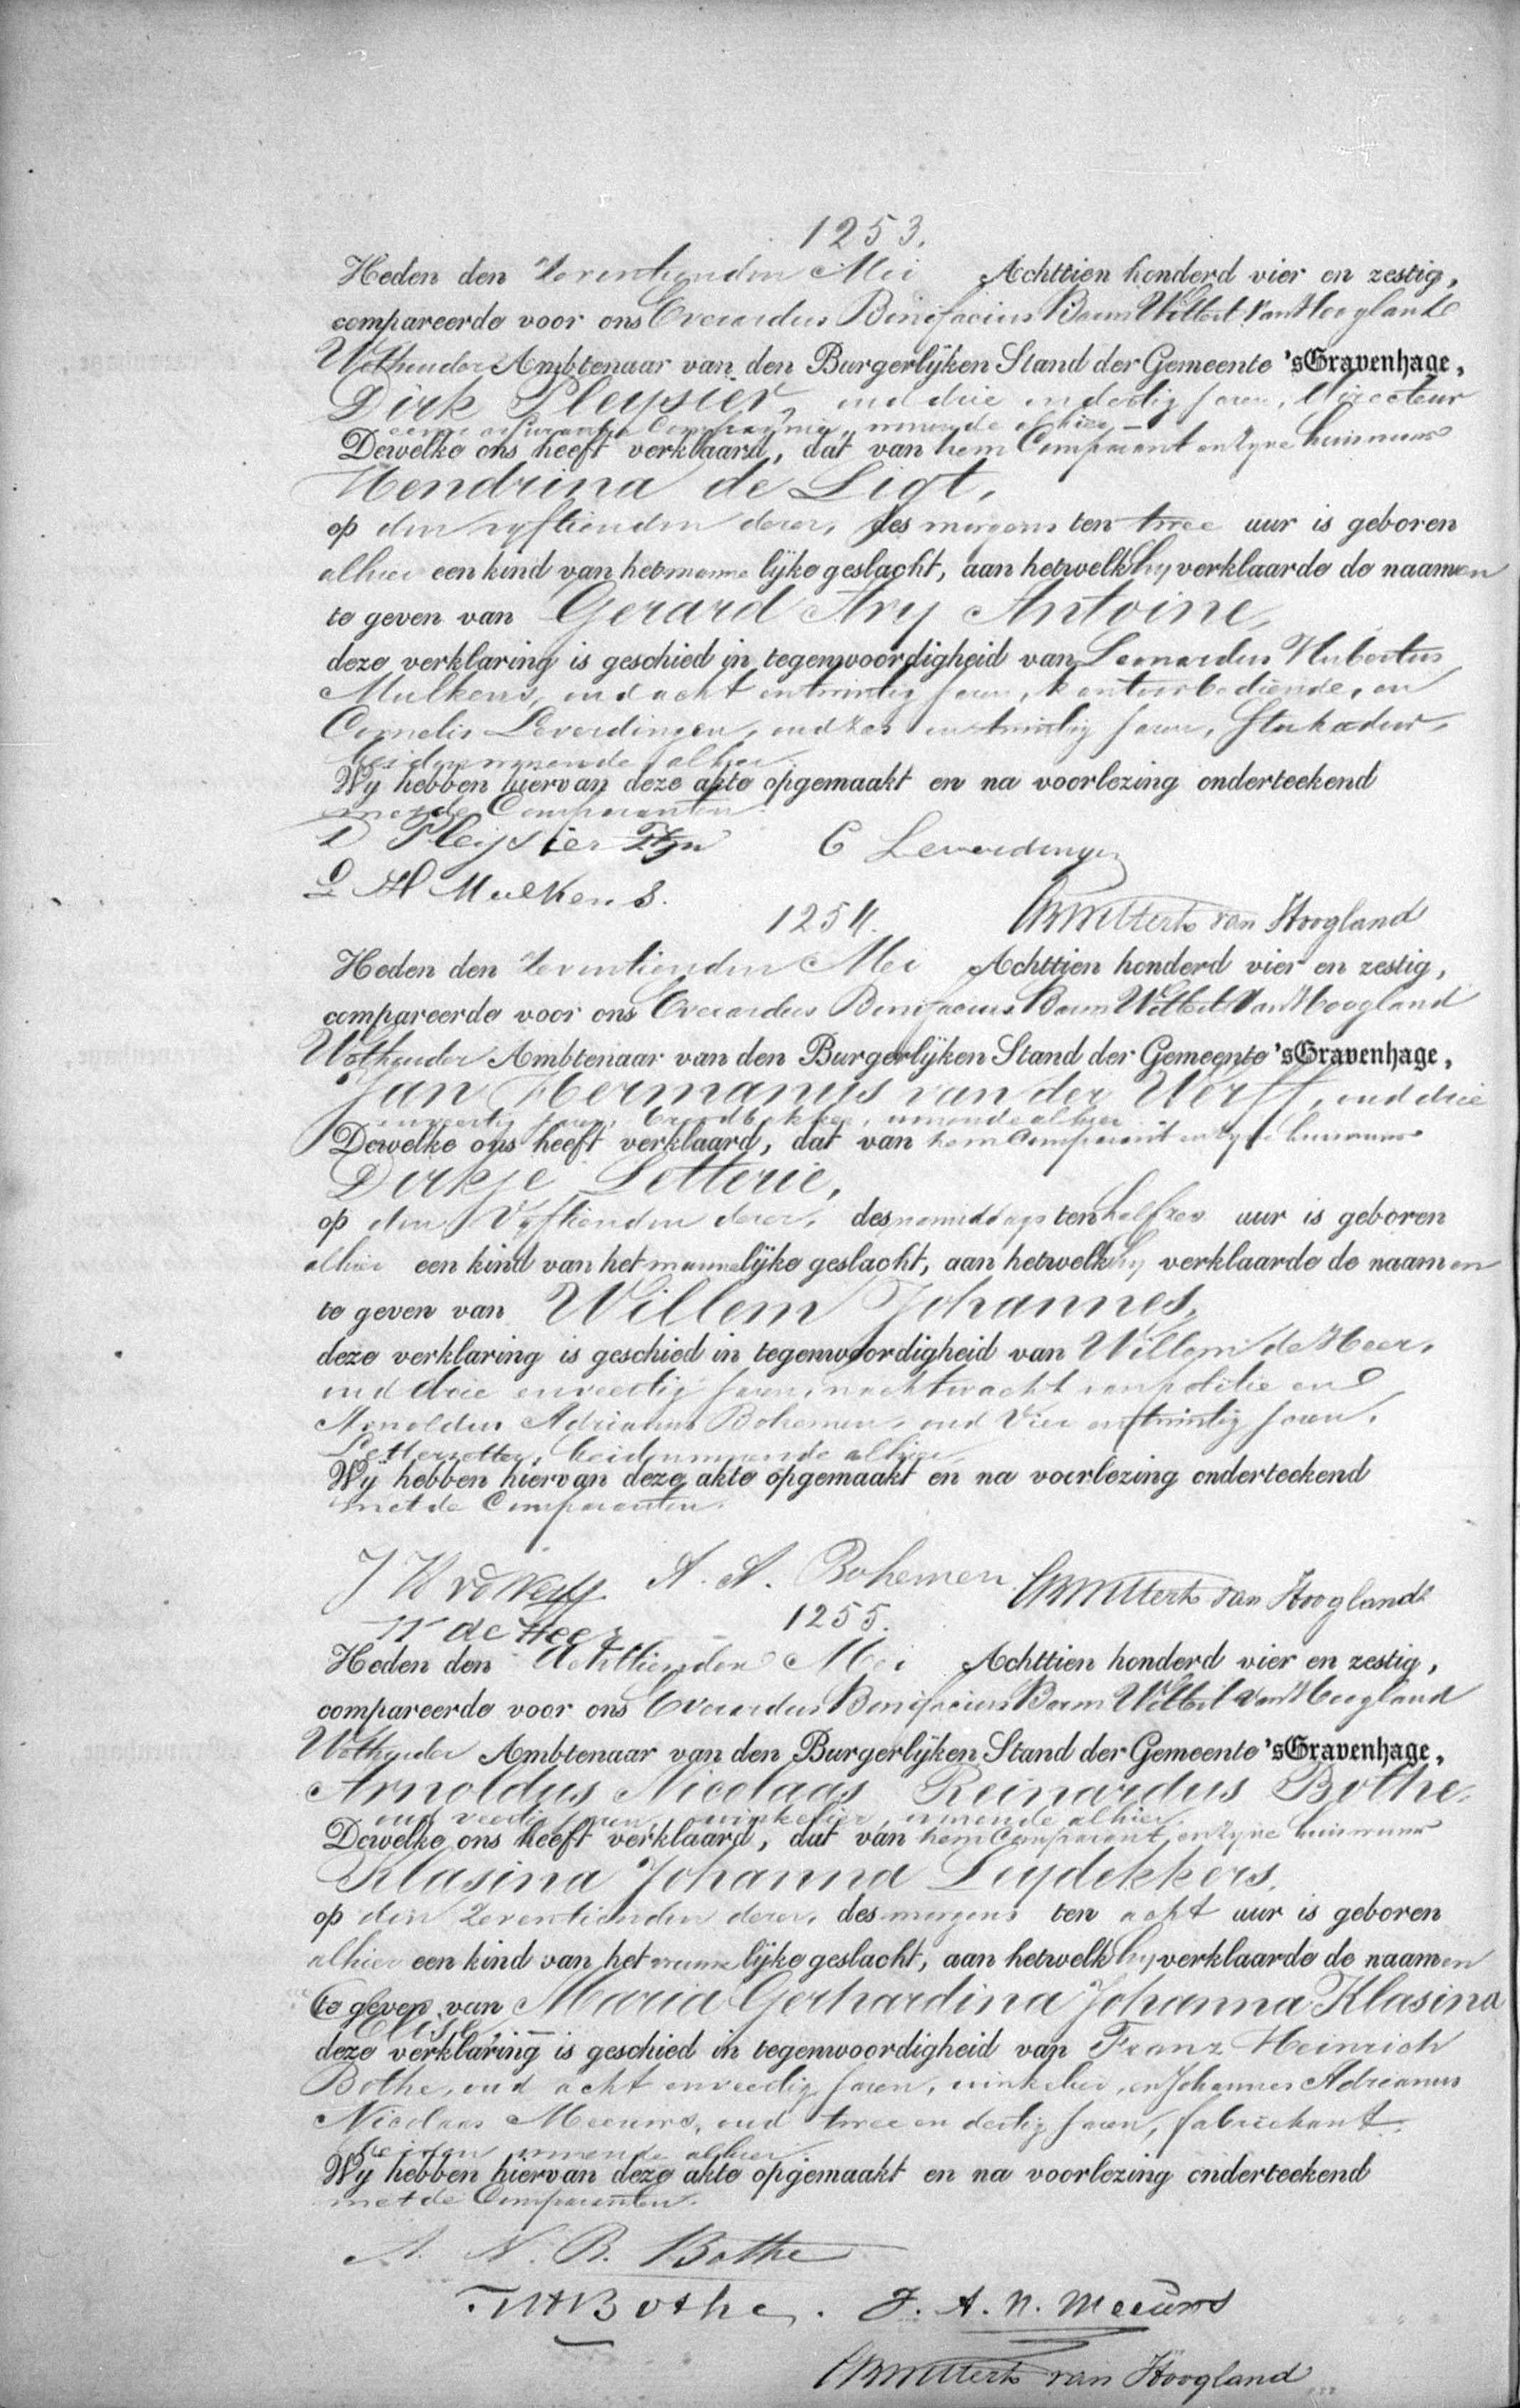 1253.
Heden den Zeventienden Mei Achttien honderd vier en zestig,
compareerde voor ons Everardus Bonifacius Baron Wittert van Hoogland
Wethouder Ambtenaar van den Burgerlijken Stand der Gemeente 'sGravenhage,
Dirk Pleijsier, oud drie en dertig jaren, Directeur
eener assurantie Compagnie, wonende alhier
Dewelke ons heeft verklaard, dat van hem Comparant en zyne huisvrouw
Hendrina de Ligt,
op den vyftienden dezer, des morgens ten twee uur is geboren
alhier een kind van het mannelijke geslacht, aan hetwelk hy verklaarde de naamen
te geven van Gerard Ary Antoine,
deze verklaring is geschied in tegenwoordigheid van Leonardus Hubertus
Mulkens, oud acht en twintig jaren, kantoorbediende, en
Cornelis Leverdingen, oud zes en twintig jaren, Stukadoor,
beiden wonende alhier.
Wij hebben hiervan deze akte opgemaakt en na voorlezing onderteekend
met de Comparanten.
D Pleijsier C Leverdingen
L H Mulkens.
1254. Wittert van Hoogland
Heden den Zeventienden Mei Achttien honderd vier en zestig,
compareerde voor ons Everardus Bonifacius Baron Wittert van Hoogland
Wethouder Ambtenaar van den Burgerlijken Stand der Gemeente 'sGravenhage,
Jan Hermanus van der Werff, oud drie
en veertig jaren, broodbakker, wonende alhier
Dewelke ons heeft verklaard, dat van hem Comparant en zyne huisvrouw
Dirkje Letterie,
op den Vyftienden dezer, des namiddags ten half zes uur is geboren
alhier een kind van het mannelijke geslacht, aan hetwelk hy verklaarde de naamen
te geven van Willem Johannes,
deze verklaring is geschied in tegenwoordigheid van Willem de Heer,
oud drie en veertig jaren, nachtwacht van politie en
Arnoldus Adrianus Bohemen, oud Vier en twintig jaren,
Letterzetter, beiden wonende alhier.
Wij hebben hiervan deze akte opgemaakt en na voorlezing onderteekend
met de Comparanten.
J H vd Werff A. A. Bohemen Wittert van Hoogland
W de Heer 1255.
Heden den Achttienden Mei Achttien honderd vier en zestig,
compareerde voor ons Everardus Bonifacius Baron Wittert van Hoogland
Wethouder Ambtenaar van den Burgerlijken Stand der Gemeente 'sGravenhage,
Arnoldus Nicolaas Reinardus Bothe,
oud veertig jaren, winkelier, wonende alhier,
Dewelke ons heeft verklaard, dat van hem Comparant, en zyne huisvrouw
Klasina Johanna Luydekkers,
op den Zeventienden dezer, des morgens ten acht uur is geboren
alhier een kind van het vrouwelijke geslacht, aan hetwelk hy verklaarde de naamen
te geven van Maria Gerhardina Johanna Klasina
Elise,
deze verklaring is geschied in tegenwoordigheid van Franz Heinrich
Bothe, oud acht en veertig jaren, winkelier, en Johannes Adrianus
Nicolaas Meeuws, oud twee en dertig jaren, fabriekant,
beiden wonende alhier.
Wij hebben hiervan deze akte opgemaakt en na voorlezing onderteekend
met de Comparanten.
A. N. R. Bothe
F H Bothe. J. A. N. Meeuws
Wittert van Hoogland